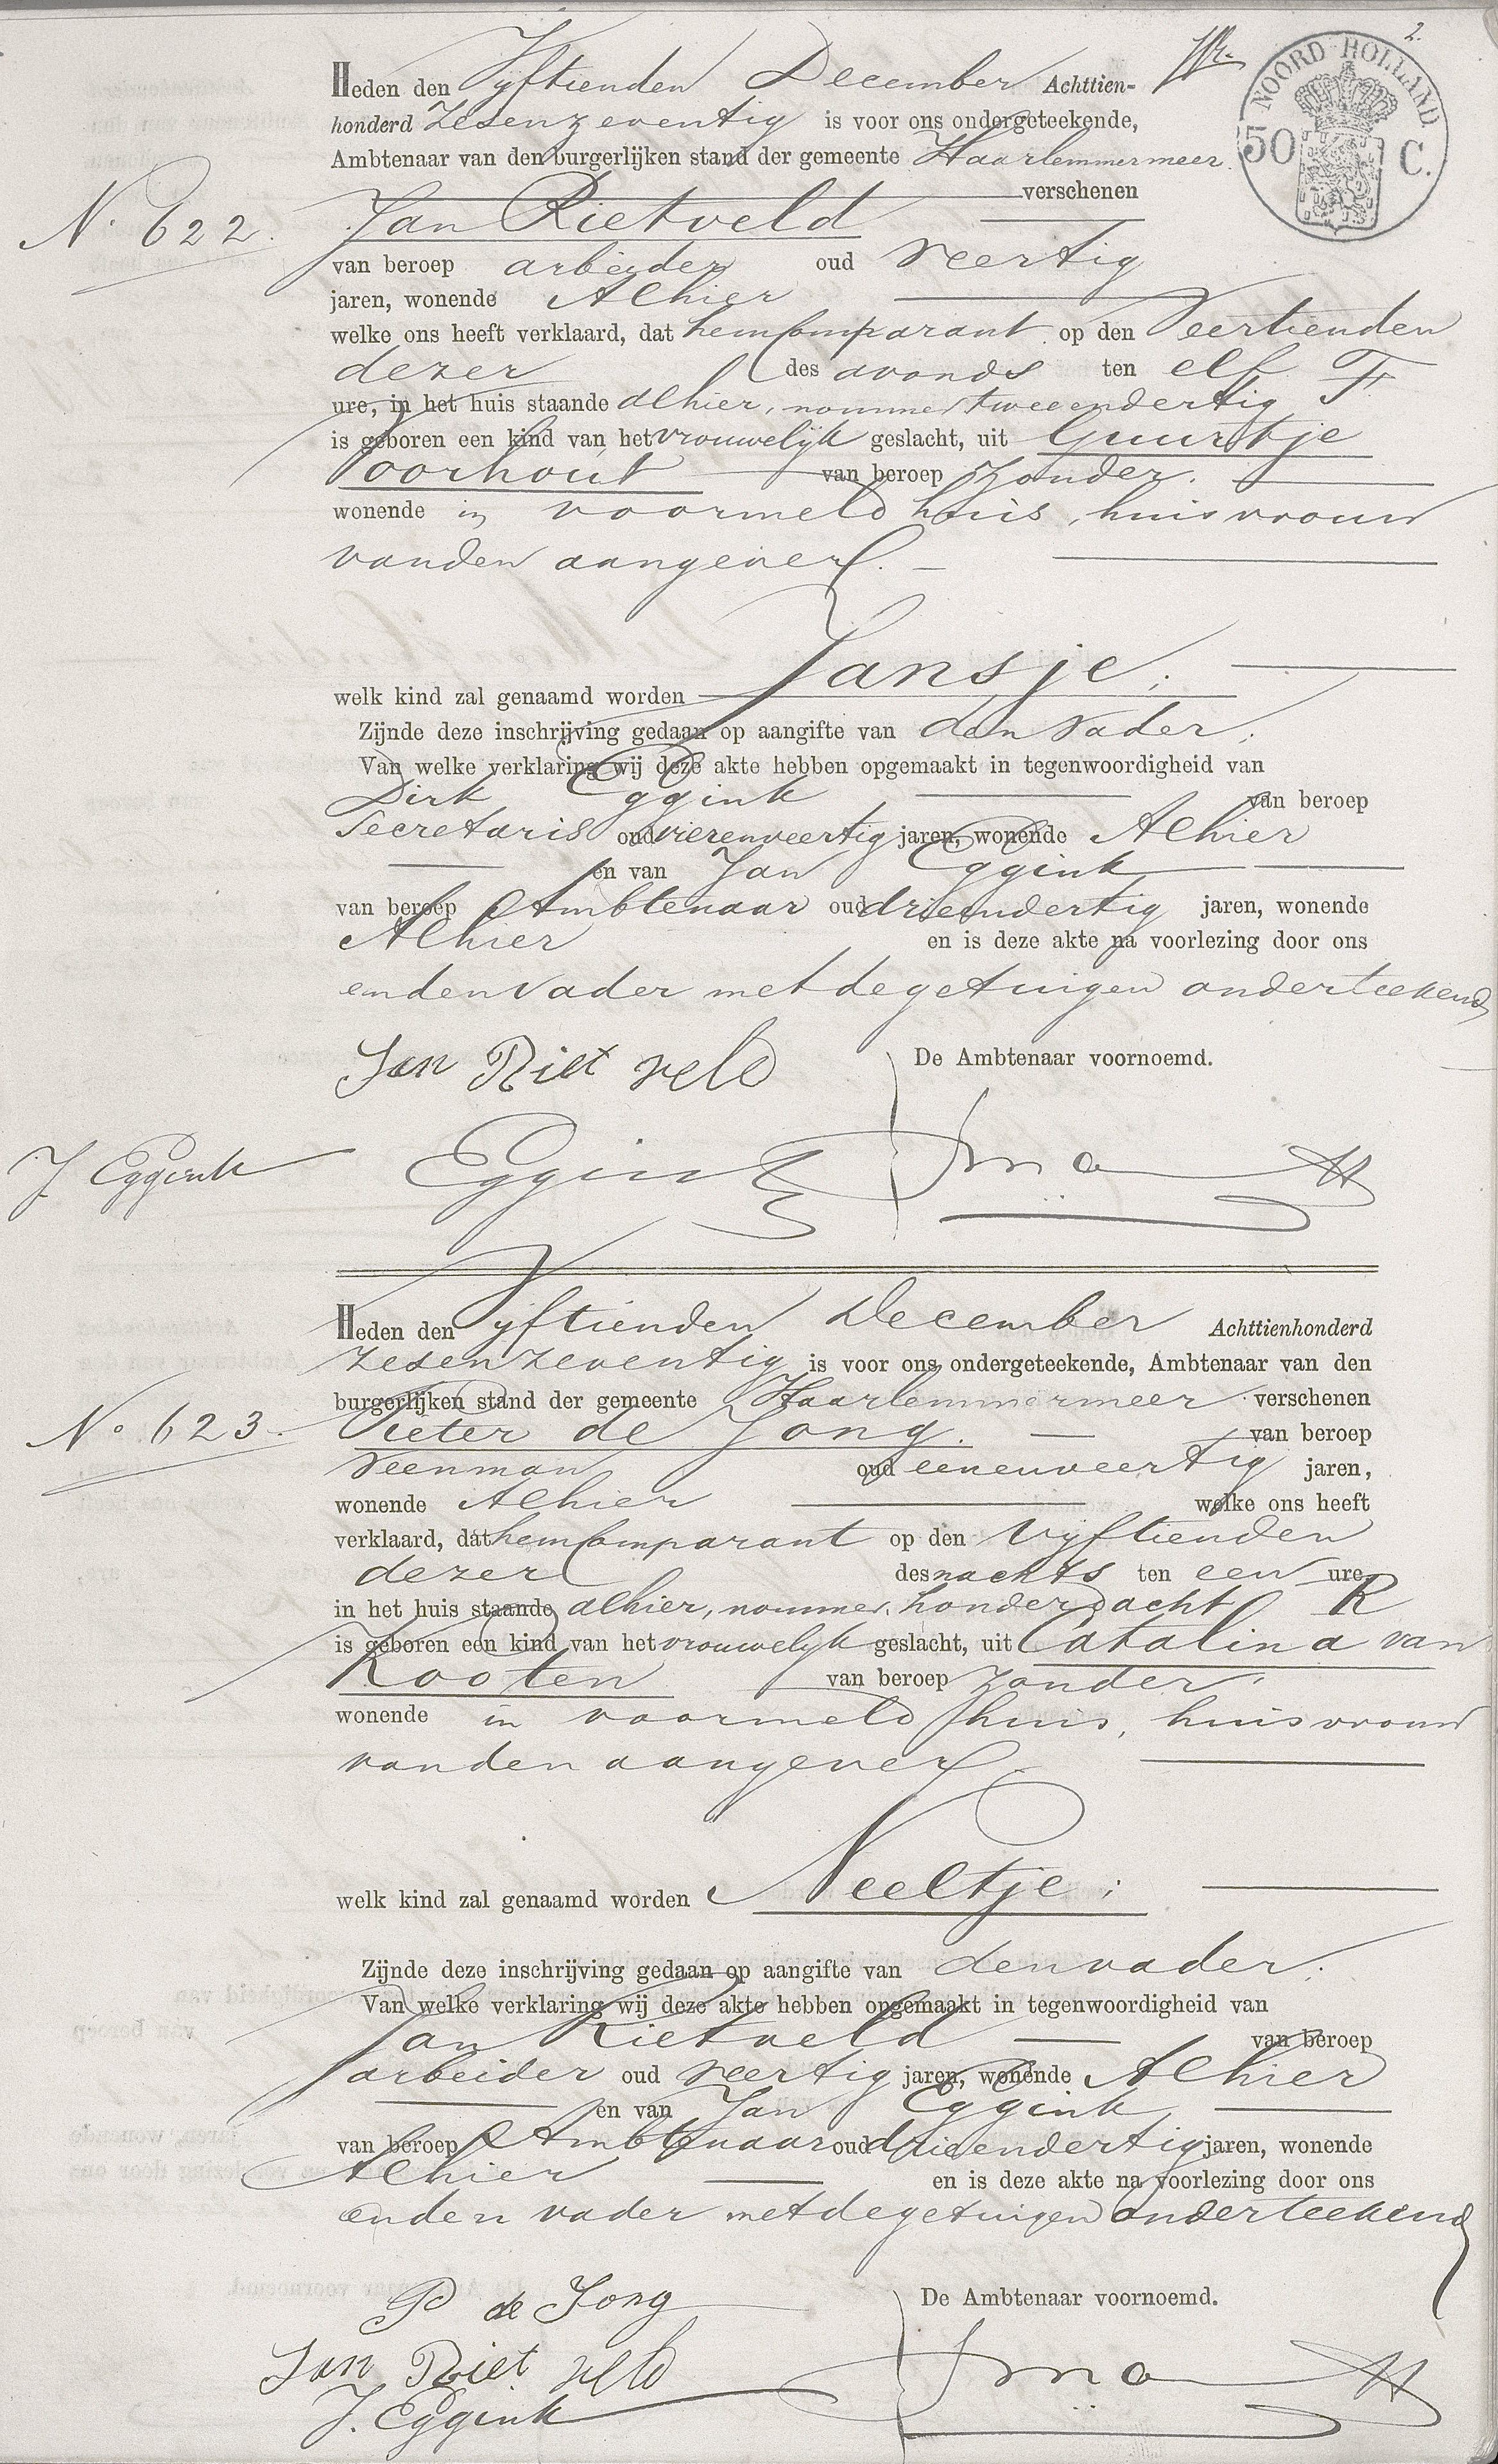 2.
NOORD HOLLAND.
50 C.
Heden den Vyftienden December Achttien-
honderd Zesenzeventig is voor ons ondergeteekende,
Ambtenaar van den burgerlijken stand der gemeente Haarlemmermeer
verschenen
N. 622. Jan Rietveld
van beroep arbeider oud veertig
jaren, wonende Alhier
welke ons heeft verklaard, dat hem Comparant op den Veertienden
dezer des avonds ten elf
ure, in het huis staande alhier, nommer tweeendertig F
is geboren een kind van het vrouwelyk geslacht, uit Guurtje
Voorhout van beroep zonder.
wonende in voormeld huis, huisvrouw
van den aangever.
welk kind zal genaamd worden Jansje;
Zijnde deze inschrijving gedaan op aangifte van den Vader;
Van welke verklaring wij deze akte hebben opgemaakt in tegenwoordigheid van
Dirk Eggink van beroep
Secretaris oud vierenveertig jaren, wonende Alhier
en van Jan Eggink
van beroep Ambtenaar oud drieendertig jaren, wonende
Alhier en is deze akte na voorlezing door ons
en den Vader met de getuigen onderteekend
Jan Riet veld De Ambtenaar voornoemd.
J Eggink Eggink
Heden den Vyftienden December Achttienhonderd
zesenzeventig is voor ons ondergeteekende, Ambtenaar van den
burgerlijken stand der gemeente Haarlemmermeer verschenen
No 623. Pieter de Jong. van beroep
Veenman oud eenenveertig jaren,
wonende Alhier welke ons heeft
verklaard, dat hem Comparant op den Vyftienden
dezer des nachts ten een ure
in het huis staande alhier, nommer honderd acht R
is geboren een kind van het vrouwelyk geslacht, uit Catalina van
Kooten van beroep zonder,
wonende in voormeld huis, huisvrouw
van den aangever.
welk kind zal genaamd worden Neeltje;
Zijnde deze inschrijving gedaan op aangifte van den vader;
Van welke verklaring wij deze akte hebben opgemaakt in tegenwoordigheid van
Jan Rietveld van beroep
arbeider oud veertig jaren, wonende Alhier
en van Jan Eggink
van beroep Ambtenaar oud drieendertig jaren, wonende
Alhier en is deze akte na voorlezing door ons
en den vader met de getuigen onderteekend
P de Jong De Ambtenaar voornoemd.
Jan Riet veld
J. Eggink